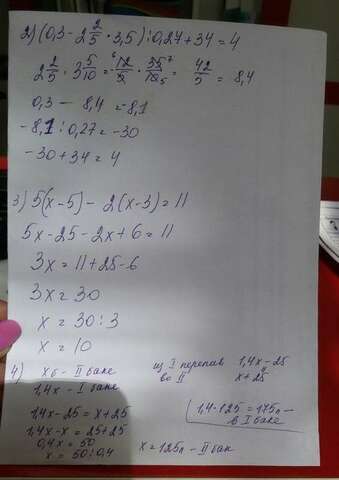 2) (0,3 - 2 2/5 · 3,5) : 0,27 + 34 = 4
2 2/5 · 3 5/10 = 12/5 · 35/10 = 42/5 = 8,4
0,3 - 8,4 = -8,1
-8,1 : 0,27 = -30
-30 + 34 = 4
3) 5(x-5) - 2(x-3) = 11
5x - 25 - 2x + 6 = 11
3x = 11 + 25 - 6
3x = 30
x = 30 : 3
x = 10
4) x б - II баке
1,4x - I баке
из I перелив 1,4x - 25
во II x + 25
1,4x - 25 = x + 25
1,4x - x = 25 + 25
0,4x = 50
x = 50 : 0,4
x = 125л - II бак
1,4 · 125 = 175л -
в I баке